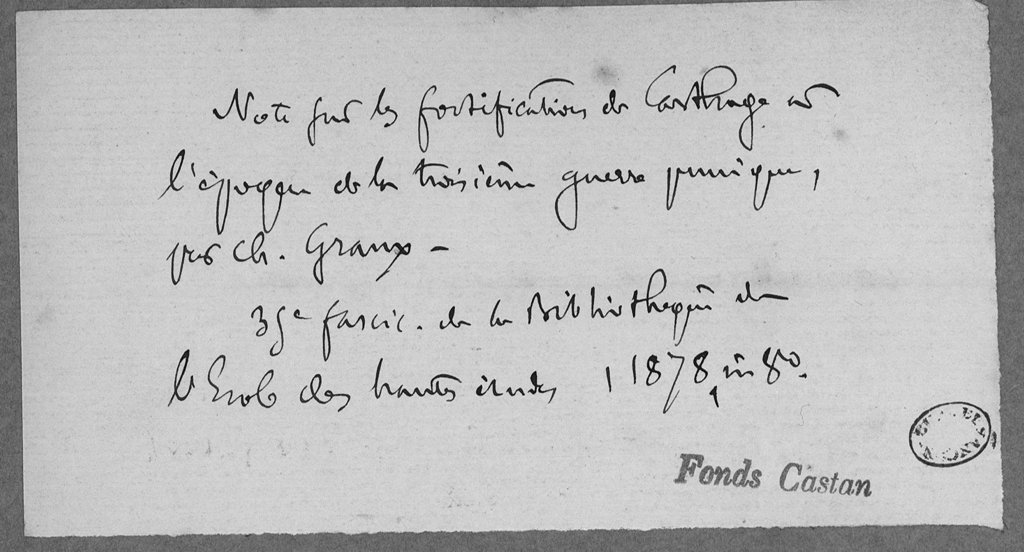 Note sur les fortifications de Carthage à
l'époque de la troisième guerre punique,
par Ch. Graux –
35e fascic. de la Bibliothèque de
l'Ecole des hautes études, 1878, in 8o.
Fonds Castan